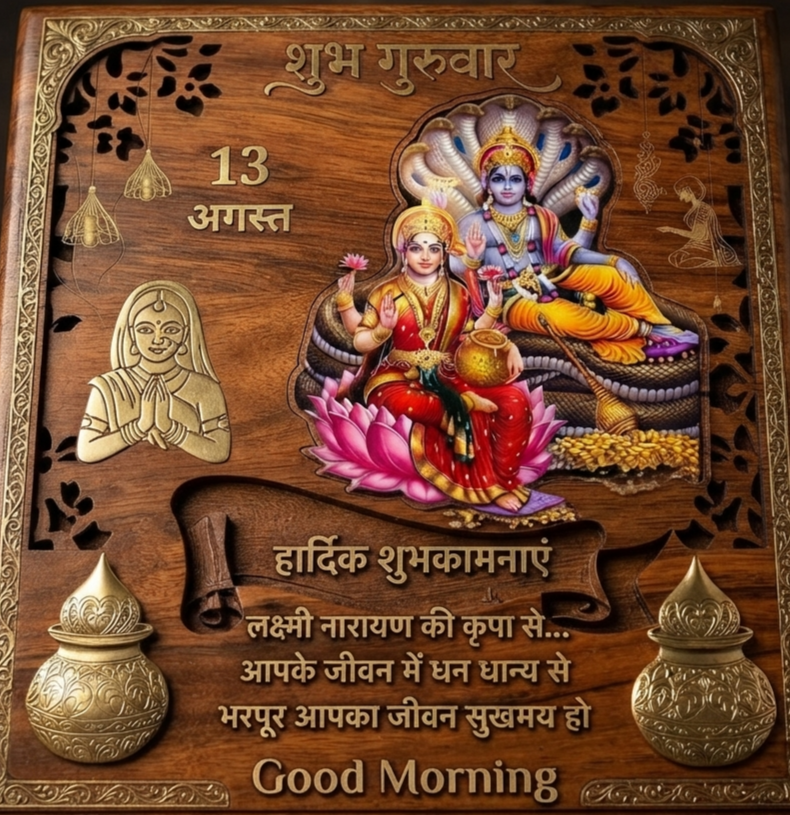 शुभ गुरुवार
13
अगस्त
हार्दिक शुभकामनाएं
लक्ष्मी नारायण की कृपा से...
आपके जीवन में धन धान्य से
भरपूर आपका जीवन सुखमय हो
Good Morning